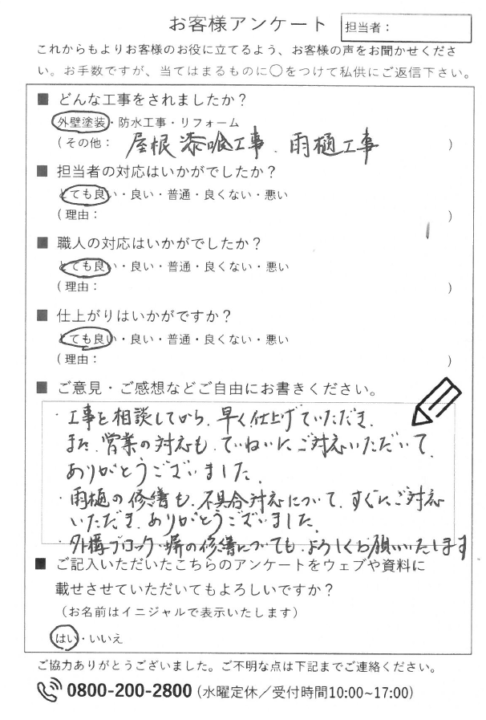 お客様アンケート
担当者：
これからもよりお客様のお役に立てるよう、お客様の声をお聞かせくださ
い。お手数ですが、当てはまるものに〇をつけて私供にご返信下さい。
■ どんな工事をされましたか？
外壁塗装・防水工事・リフォーム
（その他： 屋根漆喰工事、雨樋工事 ）
■ 担当者の対応はいかがでしたか？
とても良い・良い・普通・良くない・悪い
（理由： ）
■ 職人の対応はいかがでしたか？
とても良い・良い・普通・良くない・悪い
（理由： ）
■ 仕上がりはいかがですか？
とても良い・良い・普通・良くない・悪い
（理由： ）
■ ご意見・ご感想などご自由にお書きください。
・工事を相談してから、早く仕上げていただき、
また、営業の対応も、ていねいにご対応いただいて、
ありがとうございました。
・雨樋の修繕も、不具合対応について、すぐにご対応
いただき、ありがとうございました。
・外構ブロック塀の修繕についても、よろしくお願いいたします
■ ご記入いただいたこちらのアンケートをウェブや資料に
載せさせていただいてもよろしいですか？
（お名前はイニシャルで表示いたします）
はい・いいえ
ご協力ありがとうございました。ご不明な点は下記までご連絡ください。
0800-200-2800 (水曜定休／受付時間10:00~17:00)